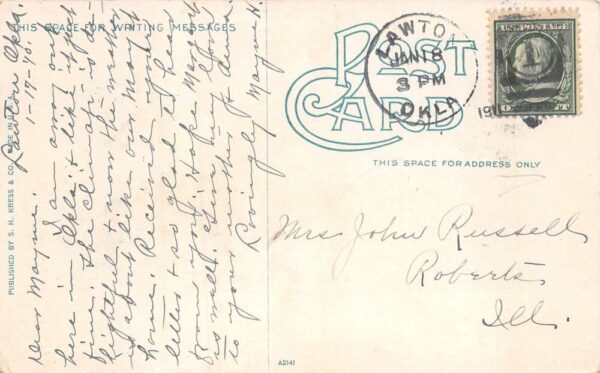 THIS SPACE FOR WRITING MESSAGES
Lawton Okla.
1-17-'10.
Dear Mayme:
I am away out
here in Okla. & like it
fine. The climate is de-
lightful & now the weather
is about like our May at
home. Received your
letter & so glad to hear
from you. Hope Maggie
is well. Give my love
to your mother &
Lovingly Mayme H.
PUBLISHED BY S. H. KRESS & CO. MADE IN U.S.A.
POST
CARD
LAWTON
JAN 18
3 PM
OKLA.
1910
U.S. POSTAGE
THIS SPACE FOR ADDRESS ONLY
Mrs John Russell
Roberts
Ill.
A2141